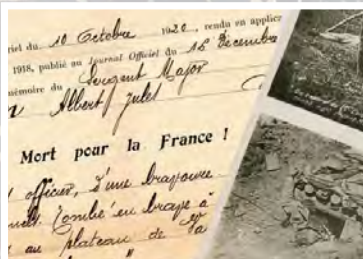 riel du 10 Octobre 1920, rendu en applic
1918, publié au Journal Officiel du 16 Decembre
mémoire du Sergent Major
Albert Jules
Mort pour la France !
officier, d'une bravoure
Tombé en brave à
au plateau de